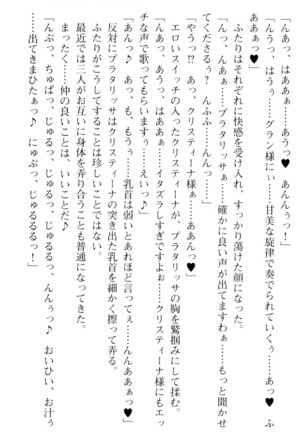 「んあっ、はああぁっ♥　あんんぅっ！」
「んうっ、はうぅ……グラン様にぃ……甘美な旋律で奏でられていくぅ……あっ♥　ふ
ああぁっ♥」
　ふたりはそれぞれに快感を受け入れ、すっかり蕩けた顔になった。
「んっ、んあぁ……プラタリッサぁ……確かに良い声が出てますわぁ……もっと聞かせ
てくださるぅ？　んふふっ、んんっ……」
「やうっ!?　あっ、クリスティーナ様ぁ……ああんっ♥」
　エロいスイッチの入ったクリスティーナが、プラタリッサの胸を鷲掴みにして揉む。
「んあっ、あうっ、はああぁ……イタズラしすぎですよぉ……クリスティーナ様にもエッ
チな声で歌ってもらいますぅ……えいっ♪」
「あんっ♪　あっ、も、もうぅ……乳首は弱いとあれほど言ってぇ……んああぁっ♥」
　反対にプラタリッサはクリスティーナの突き出た乳首を細かく擦って弄る。
　ふたりがこうしてすることは珍しいことではない。
　最近では三人がお互いに身体を弄り合うことも普通になってきた。
　まったく……仲の良いことは、いいことだ♪
「んぷっ、ちゅばっ、じゅるっ、じゅるっ、んんぅっ♪　おいひい、お汁ぅ
……出てきまひたぁっ♪　にゅぷっ、じゅるるるっ！」